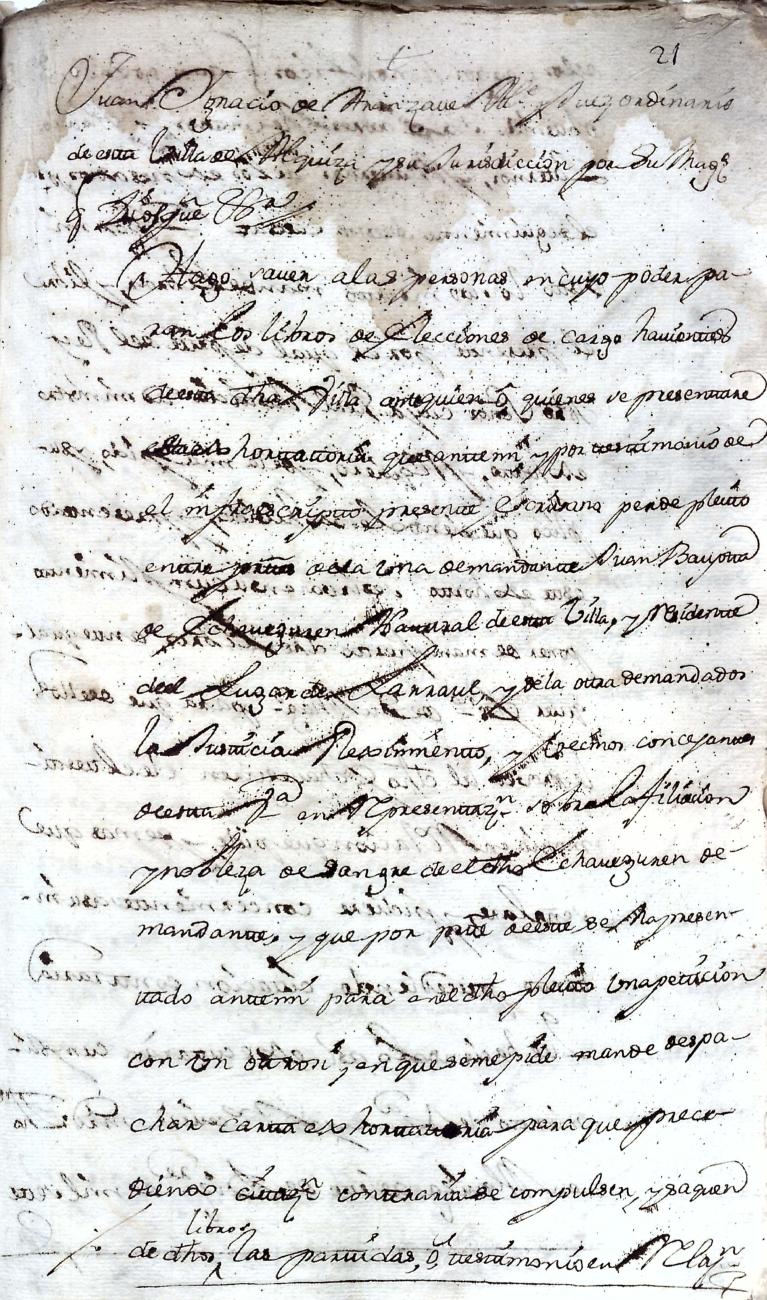 21
Juan Ignacio de Aranzave Alle. y Juez ordinario
de esta Villa de Alquiza y su Jurisdiccion por Su Magd.
q Dios gue &ra
Hago saver a las personas en cuyo poder pa-
ran los libros de Elecciones de cargo havientes
de esta dha Villa ante quien ó quienes se presentare
esta exhortattoria que ante mi y por testimonio de
el infraescripto presente Escribano pende pleito
entre partes de la Una demandante Juan Bauptta
de Echaveguren Natural de esta Villa, y Residente
del Lugar de Larraul, y de la otra demandados
la Justicia Reximiento, y vecinos concejantes
de esta Va en Representazn. sobre la filiacion
y nobleza de Sangre de el dho Echaveguren de-
mandante, y que por parte de este se ha presen-
tado ante mi para en el dho pleito Una peticion
con Un otrosi, y en que se me pide mande despa-
char carta exhortatoria para que prece-
diendo citazn. contraria se compulsen, y saquen
de dhos libros las partidas, ó testimonio en Relazn